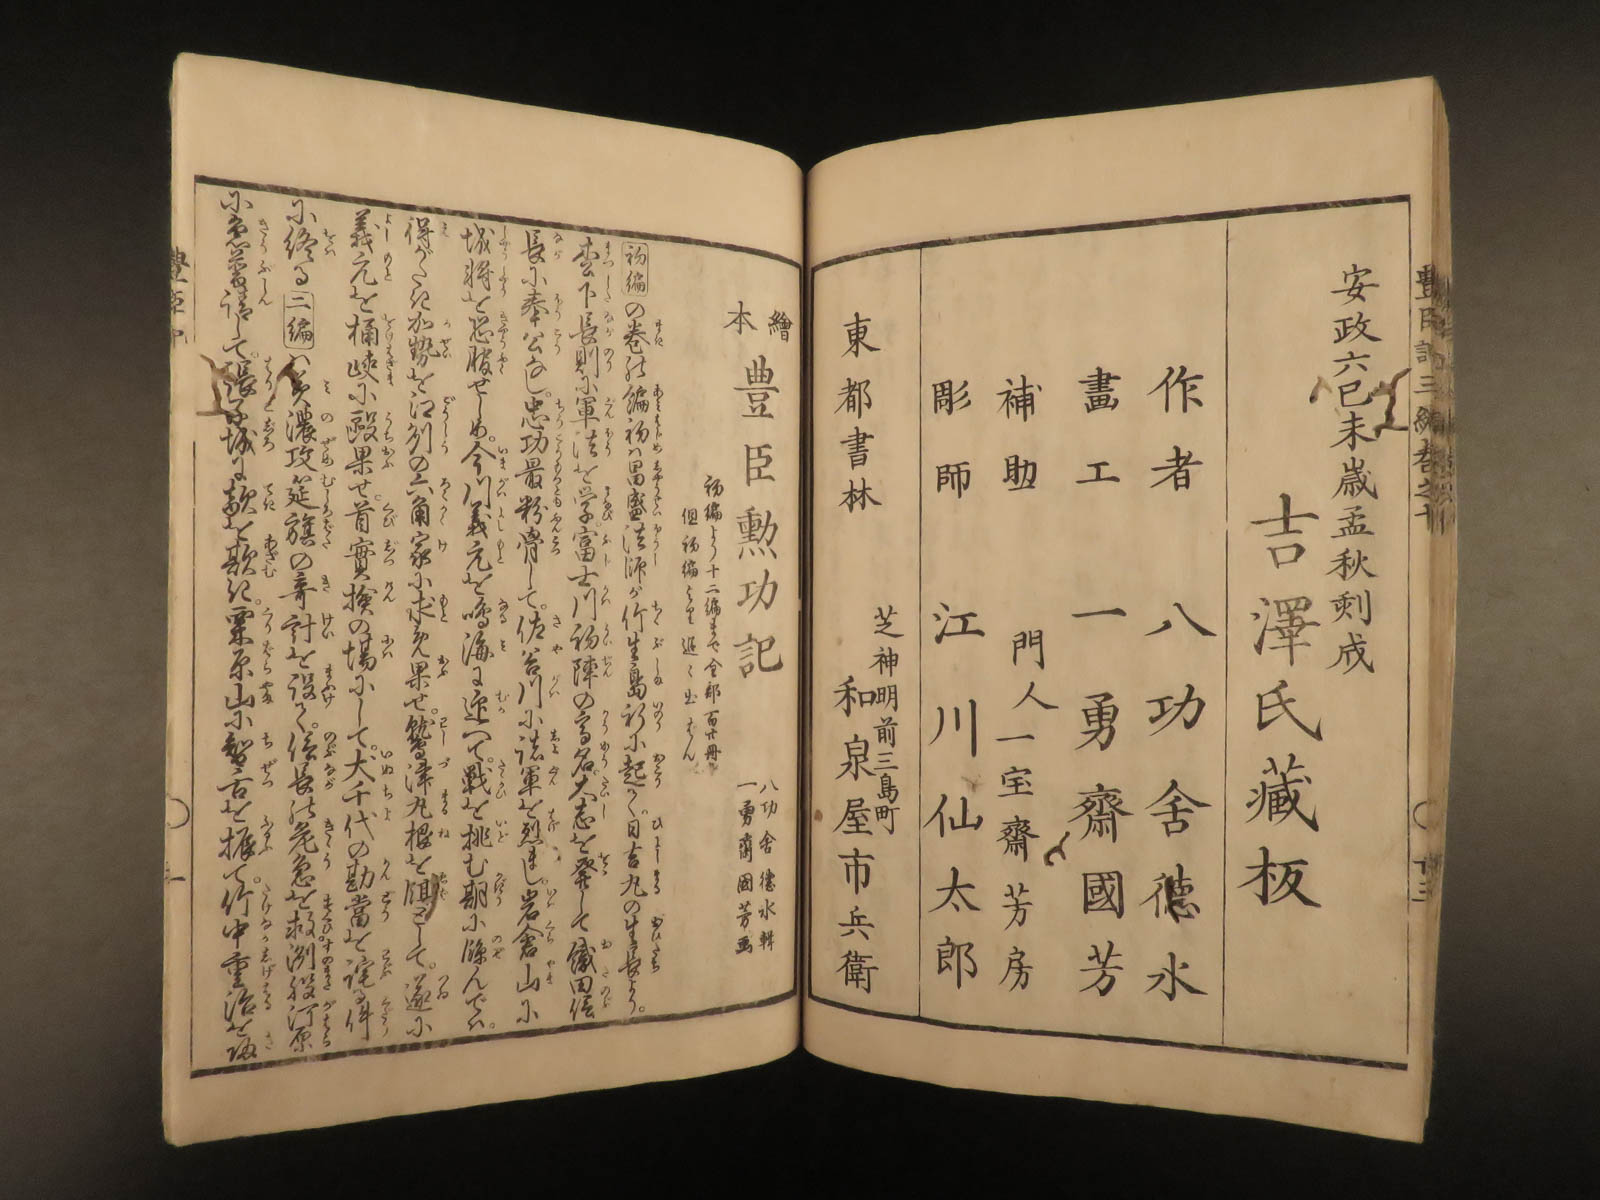 安政六己未歳孟秋刻成
吉澤氏藏板
作者　八功舍德水
畫工　一勇齋國芳
補助　門人一宝齋芳房
彫師　江川仙太郎
東都書林
芝神明前三島町
和泉屋市兵衛
繪本豊臣勲功記
初編より十二編まで全部百廿冊
但初編より追々出はん
八功舍德水輯
一勇齋國芳画
初編の巻は編初は昌盛法師が竹生島祈に起て。日吉丸の生長より。
松下長則に軍法を学。冨士川初陣の高名大志を発して織田信
長に奉公なし。忠功最粉骨して。佐谷川に諸軍を烈まし。岩倉山に
城将を忍腹せしめ。今川義元を鳴海に迎へて戦を挑む期に臨んでは。
得がたき加勢を江州の六角家に求め果せ。鷲津丸根を餌として。遂に
義元を桶峽に殴果せ。首實撿の場にして。犬千代の勘當を詫る件
に終る 二編 は美濃攻筵旗の奇計を設て。信長の危急を救。洲股河原
に急普請して。張子城に敵を欺き。栗原山に智舌を振て。竹中重治を